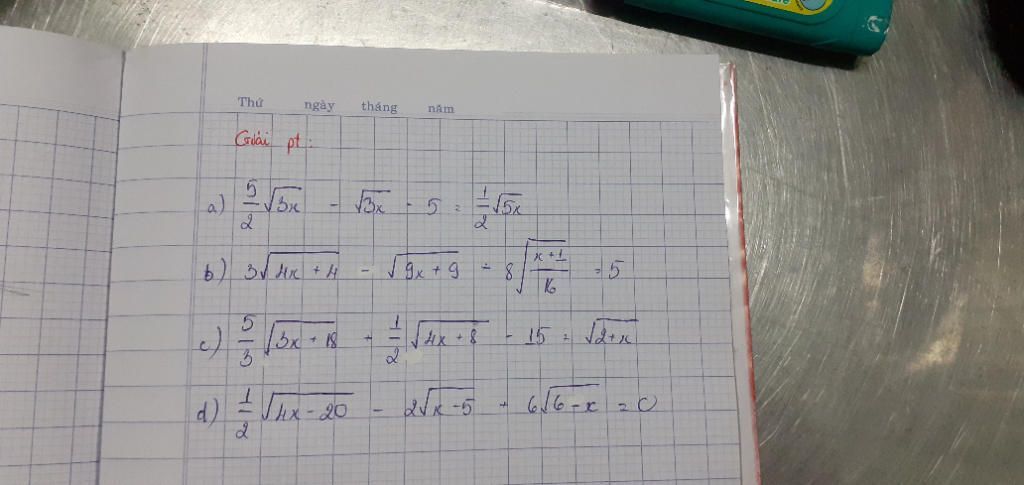 Thứ ngày tháng năm
Giải pt:
a) 5/2 √3x - √3x - 5 = 1/2 √5x
b) 3√(4x + 4) - √(9x + 9) - 8√((x+1)/16) = 5
c) 5/3 √(3x + 18) + 1/2 √(4x + 8) - 15 = √(2+x)
d) 1/2 √(4x - 20) - 2√(x-5) + 6√(6-x) = 0